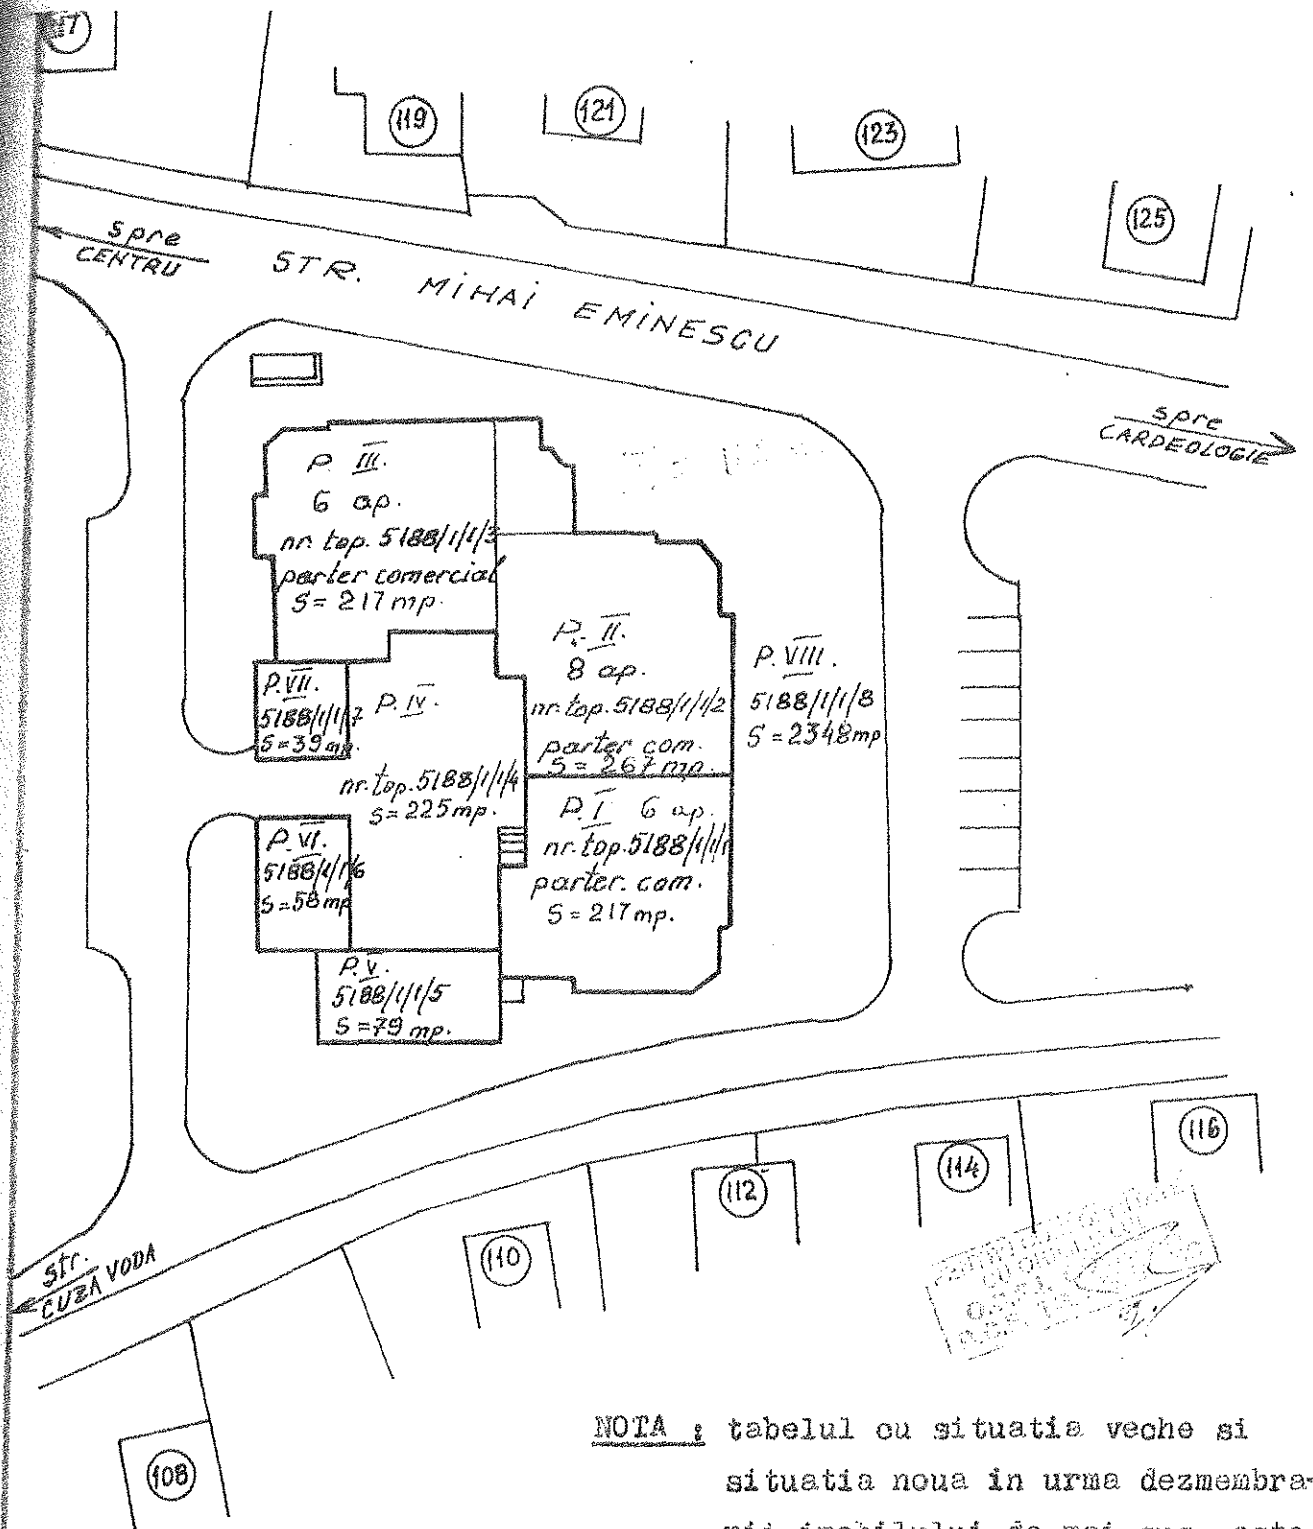 119
121
123
125
spre
CENTRU
STR. MIHAI EMINESCU
spre
CARDEOLOGIE
P. III.
6 ap.
nr. top. 5188/1/1/3
parter comercial
S = 217 mp.
P. II.
8 ap.
nr. top. 5188/1/1/2
parter com.
S = 267 mp.
P. VIII.
5188/1/1/8
S = 2348 mp
P. VII.
5188/1/1/7
S = 39 mp.
P. IV.
nr. top. 5188/1/1/4
S = 225 mp.
P. I 6 ap.
nr. top. 5188/1/1/1
parter. com.
S = 217 mp.
P. VI.
5188/1/1/6
S = 58 mp
P. V.
5188/1/1/5
S = 79 mp.
116
114
112
110
str.
CUZA VODA
108
NOTA : tabelul cu situatia veche si
situatia noua in urma dezmembra-